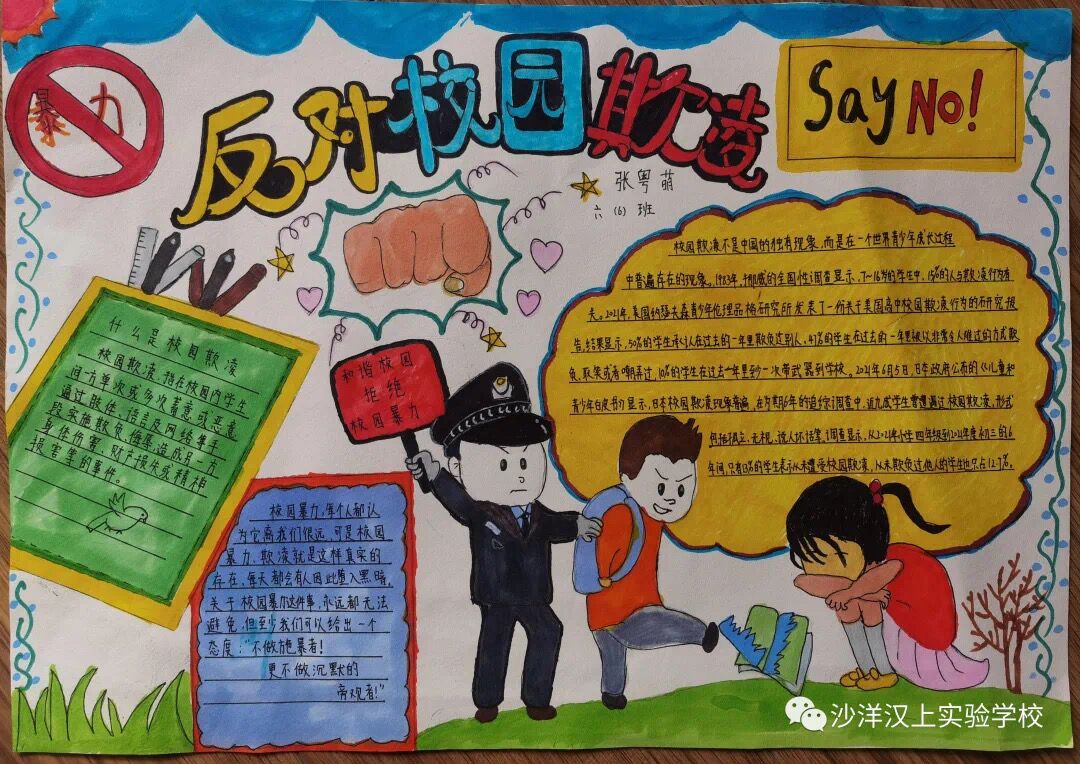 暴力
反对校园欺凌
Say NO!
张粤萌
六（6）班
校园欺凌不是中国的独有现象，而是在一个世界青少年成长过程
中普遍存在的现象。1983年，挪威的全国性调查显示，7~16岁的学生中，15%的人与欺凌行为有
关。2021年，美国约瑟夫森青少年伦理品格研究所发来了一份关于美国高中校园欺凌行为的研究报
告，结果显示，50%的学生承认在过去的一年里欺负过别人，47%的学生在过去的一年里被以非常令人难过的方式欺
负、取笑或者嘲弄过，10%的学生在过去一年里至少一次带武器到学校。2021年6月5日，日本政府公布的《儿童和
青少年白皮书》显示，日本校园欺凌现象普遍，在为期6年的追踪调查中，近九成学生曾遭遇过校园欺凌，形式
包括孤立、无视、说人坏话等，调查显示，从2021年小学四年级到2021年度初三的6
年间，只有13%的学生表示从未遭受校园欺凌，从未欺负过他人的学生也只占12.7%。
什么是校园欺凌
校园欺凌，指在校园内学生
间一方单次或多次蓄意或恶意
通过肢体、语言及网络等手
段实施欺负、侮辱，造成另一方
身体伤害、财产损失或精神
损害等的事件。
和谐校园
拒绝
校园暴力
校园暴力，每个人都认
为它离我们很远，可是校园
暴力、欺凌就是这样真实的
存在，每天都会有人因此堕入黑暗。
关于校园暴力这件事，永远都无法
避免，但至少我们可以给出一个
态度：“不做施暴者！
更不做沉默的
旁观者！”
沙洋汉上实验学校